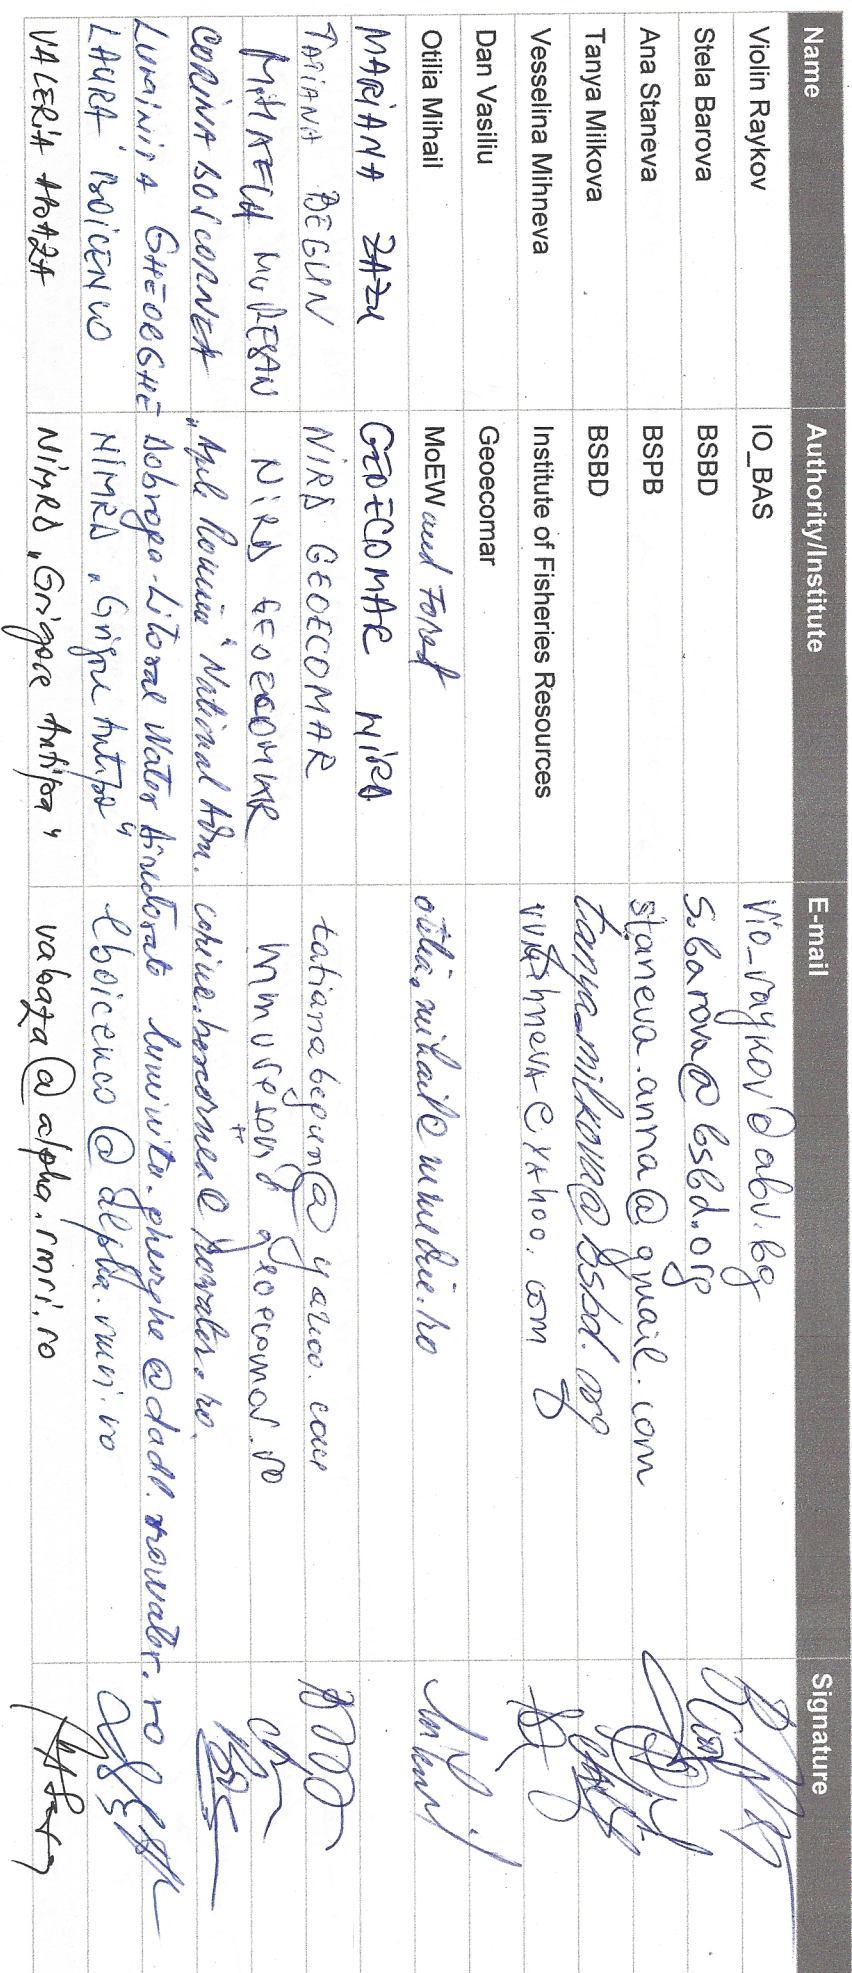 Name Authority/Institute E-mail Signature
Violin Raykov IO_BAS vio_raykov@abv.bg
Stela Barova BSBD s.barova@bsbd.org
Ana Staneva BSPB staneva.anna@gmail.com
Tanya Milkova BSBD tanya.milkova@bsbd.org
Vesselina Mihneva Institute of Fisheries Resources vvmihneva@yahoo.com
Dan Vasiliu Geoecomar
Otilia Mihail MoEW and Forest otilia.mihail@mmediu.ro
MARIANA ZAZU GEOECOMAR NIRD
TATIANA BEGUN NIRD GEOECOMAR tatianabegun@yahoo.com
MIHAELA MURESAN NIRD GEOECOMAR mmuresan@geoecomar.ro
CORINA BOSCORNEA „Apele Romane" National Adm. corina.boscornea@rowater.ro.
LUMINITA GHEORGHE Dobrogea-Litoral Water Directorate luminita.gheorghe@dadl.rowater.ro
LAURA BOICENCO NIMRD „Grigore Antipa" lboicenco@alpha.rmri.ro
VALERIA ABAZA NIMRD „Grigore Antipa" vabaza@alpha.rmri.ro